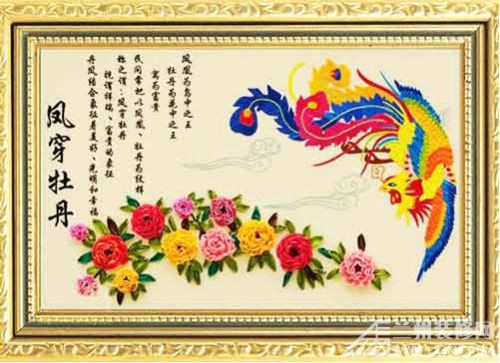 凤凰为鸟中之王
牡丹为花中之王
寓为富贵
民间常把以凤凰、牡丹为纹样
称之谓：凤穿牡丹
视谓祥瑞、富贵的象征
丹凤结合象征着美好、光明和幸福
凤穿牡丹
兰州装修网